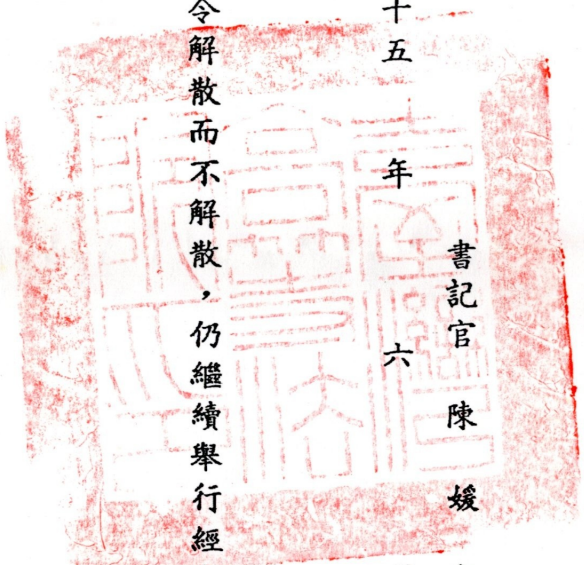 書記官 陳 媛
十五 年 六
令解散而不解散，仍繼續舉行經